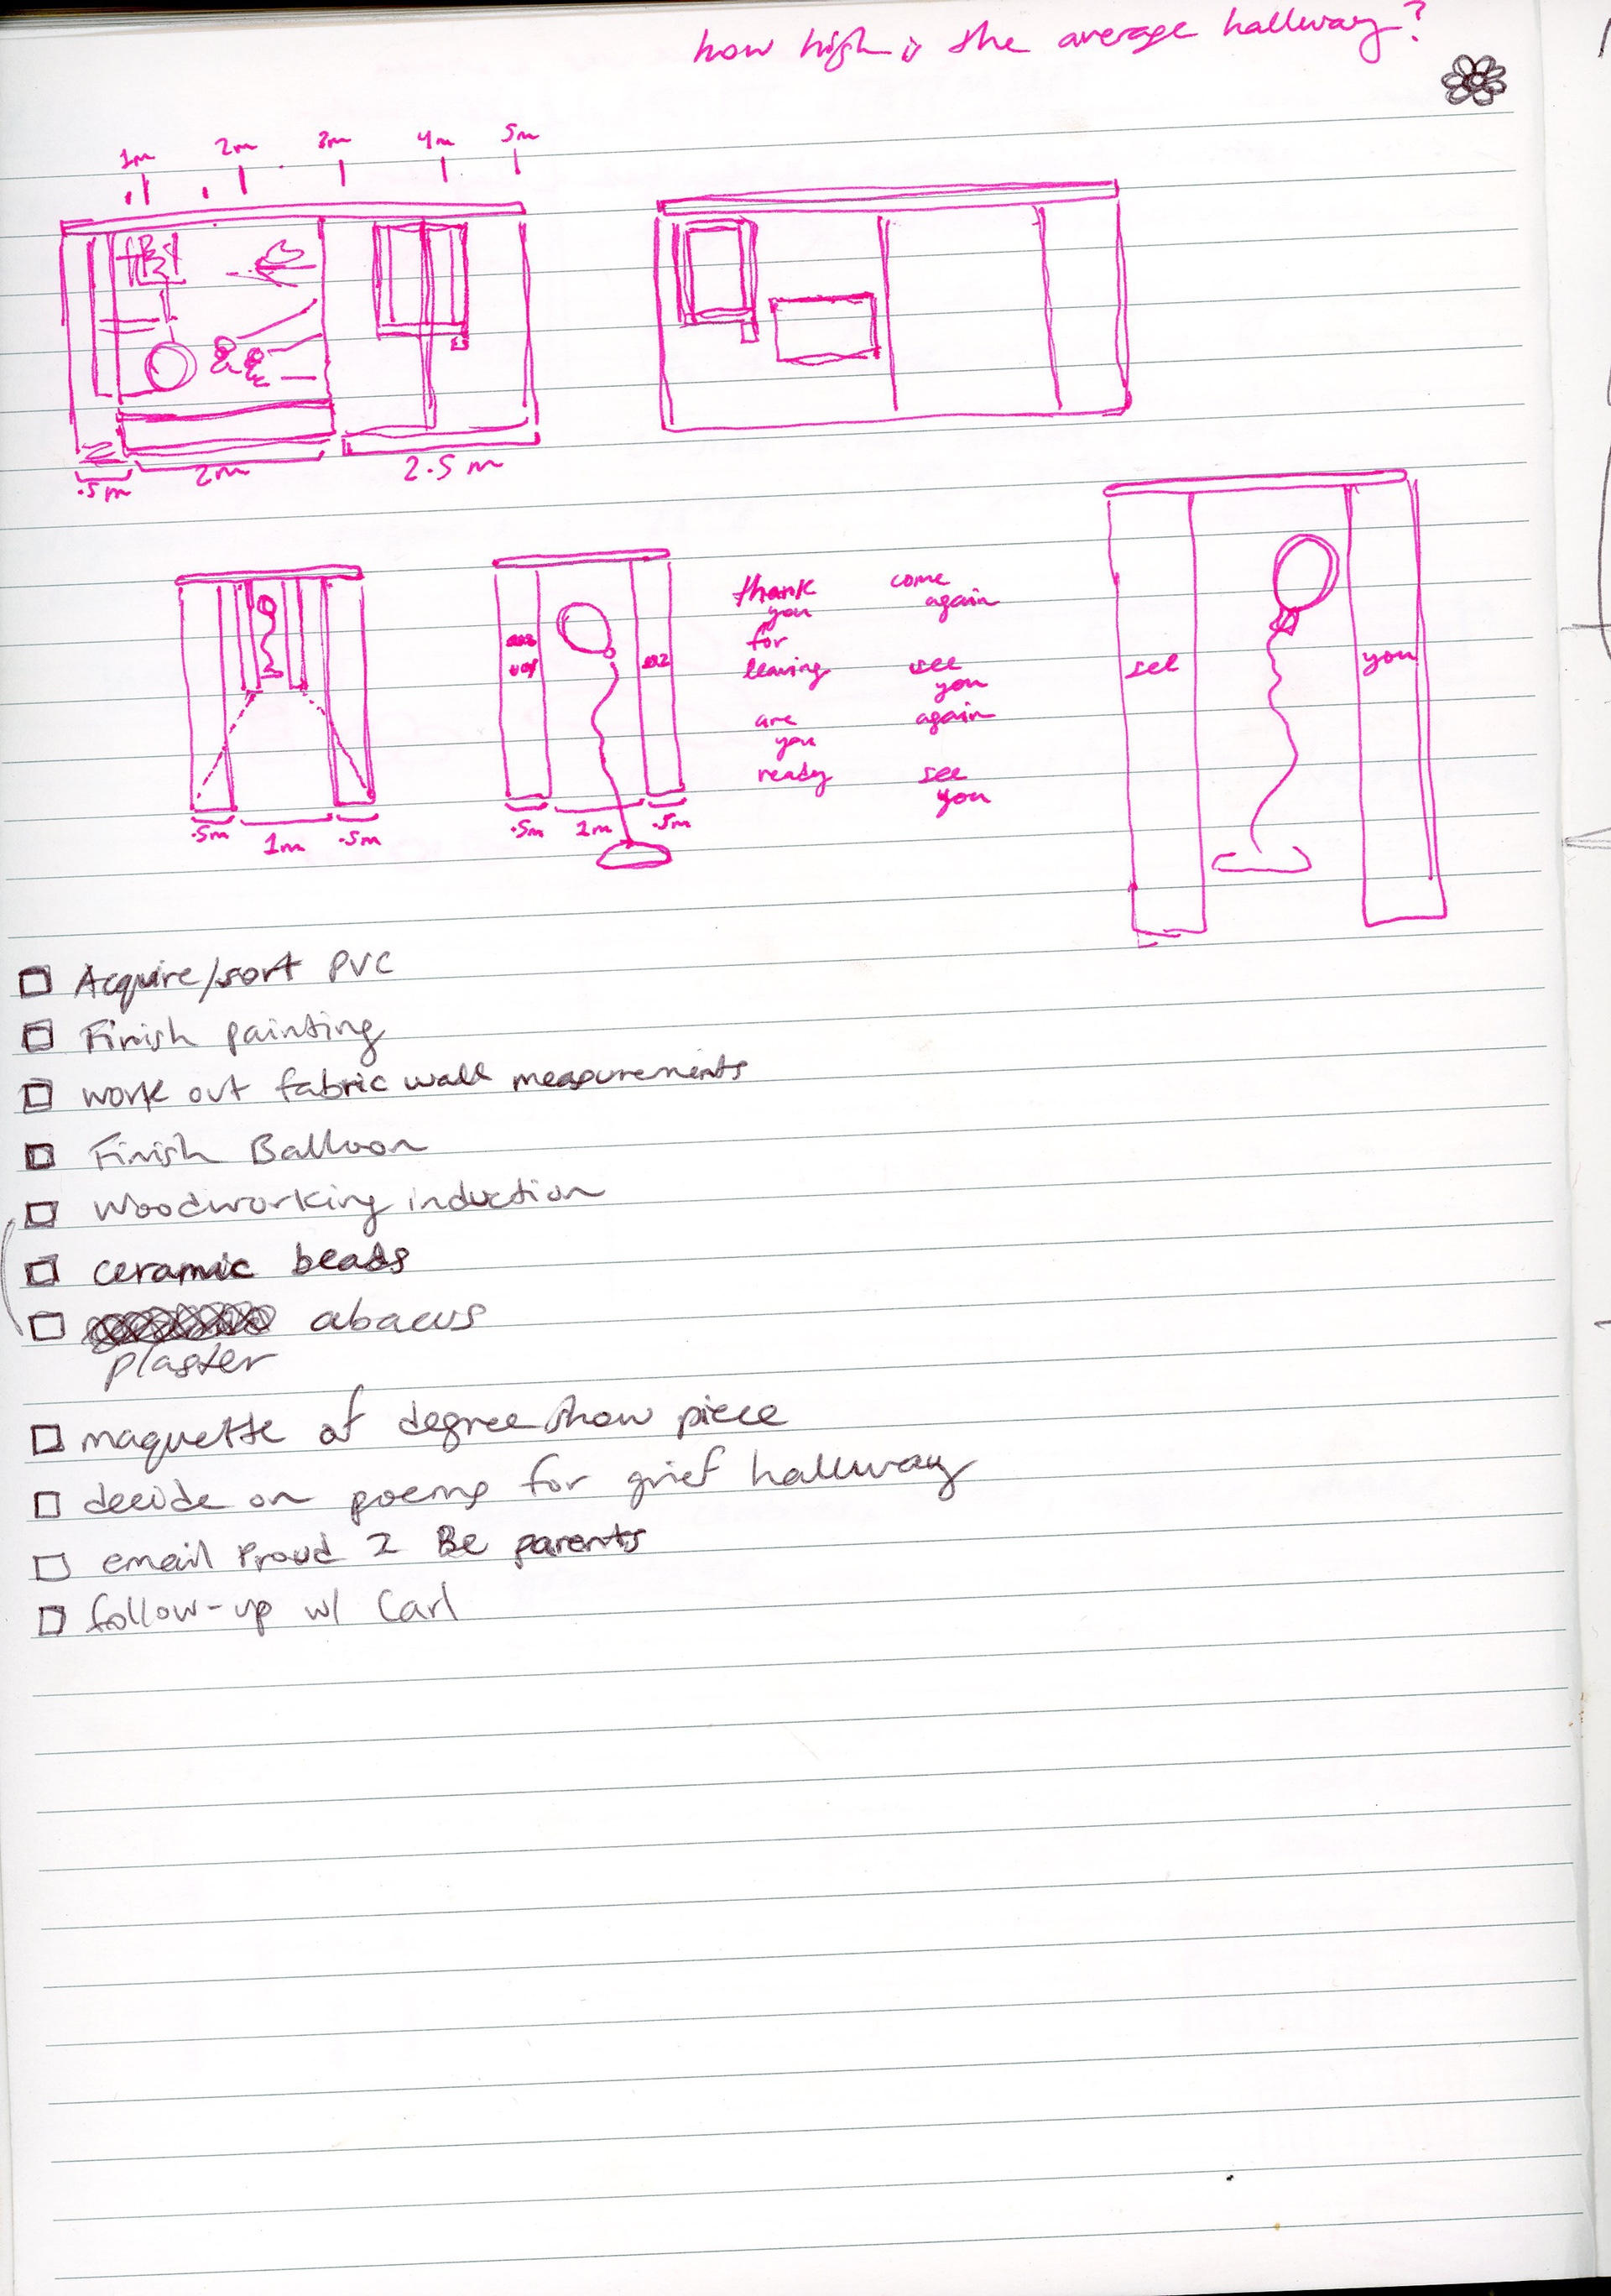 how high is the average hallway?
1m 2m 3m 4m 5m
.5m 2m 2.5m
thank
you
for
leaving
are
you
ready
come
again
see
you
again
see
you
see you
.5m 1m .5m
.5m 1m .5m
Acquire/sort PVC
Finish painting
work out fabric wall measurements
Finish Balloon
Woodworking induction
ceramic beads
abacus
plaster
maquette of degree show piece
decide on poems for grief hallway
email Proud 2 Be parents
follow-up w/ Carl